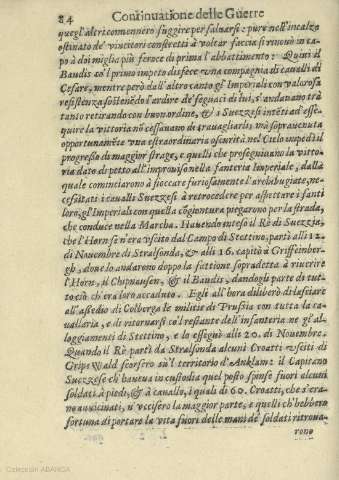 84 Continuatione delle Guerre
quegl'altri convennero fuggire per salvarsi: pure nell'incalzo
ostinato de' vincitori constretti à voltar faccia si rinouò in ca-
po à doi miglia più feroce di prima l'abbattimento: Quiui il
Baudis co'l primo impeto disfece una compagnia di caualli di
Cesare, mentre però dall'altro canto gl'Imperiali con valorosa
resistenza sostenedo l'ardire de' seguaci di lui, s'andauano trà
tanto retirando con buon ordine, & i Suezzesi intēti ad esse-
quire la vittoria nō cessauano di trauagliarli, mà soprauenuta
opportunamēte una estraordinaria oscurità nel Cielo impedì il
progresso di maggior strage, e quelli che proseguiuano la vitto-
ria dato di petto all'improuiso nella fanteria Imperiale, dalla
quale cominciarono à fioccare furiosamente l'archibugiate, ne-
cessitati i caualli Suezzesi à retrocedere per aspettare i fanti
loro, gl'Imperiali con quella cōgiontura piegarono per la strada,
che conduce nella Marcha. Hauendo inteso il Rè di Suezzia,
che l'Horn se n'era vscito dal Campo di Stettino, partì alli 12.
di Nouembre di Stralsonda, & alli 16. capitò à Griffeinber-
gh, doue lo andarono doppo la fattione sopradetta à riuerire
l'Horn, il Chiphausen, & il Baudis, dandogli parte di tut-
to ciò ch'era loro accaduto. Egli all'hora deliberò di lasciare
all'assedio di Colberga le militie di Prussia con tutta la ca-
uallaria, e di ritornarsi co'l restante dell'infanteria ne gl'al-
loggiamenti di Stettino, e lo esseguì alli 20. di Nouembre.
Quando il Rè partì da Stralsonda alcuni Croatti vsciti di
Gripswald scorsero sù'l territorio d'Anklam: il Capitano
Suezzese ch'haueua in custodia quel posto spinse fuori alcuni
soldati à piedi, & à cauallo, i quali di 60. Croatti, che s'era-
no auuicinati, n'vccisero la maggior parte, e quelli ch'hebbero
fortuna di portare la vita fuori delle mani de' soldati ritroua-
rono
Colección ABANCA